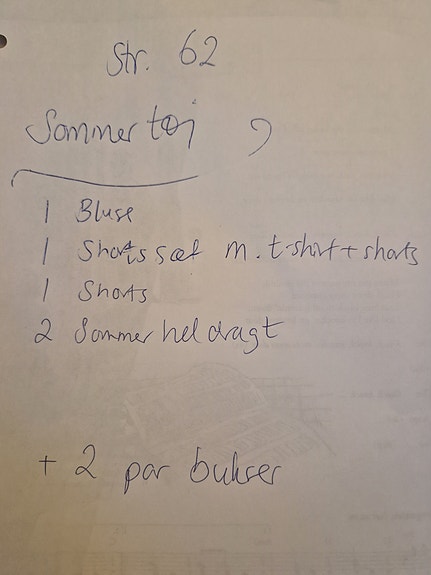 Str. 62
Sommertøj
1 Bluse
1 Shorts sæt m. t-shirt + shorts
1 Shorts
2 Sommer hel dragt
+ 2 par bukser